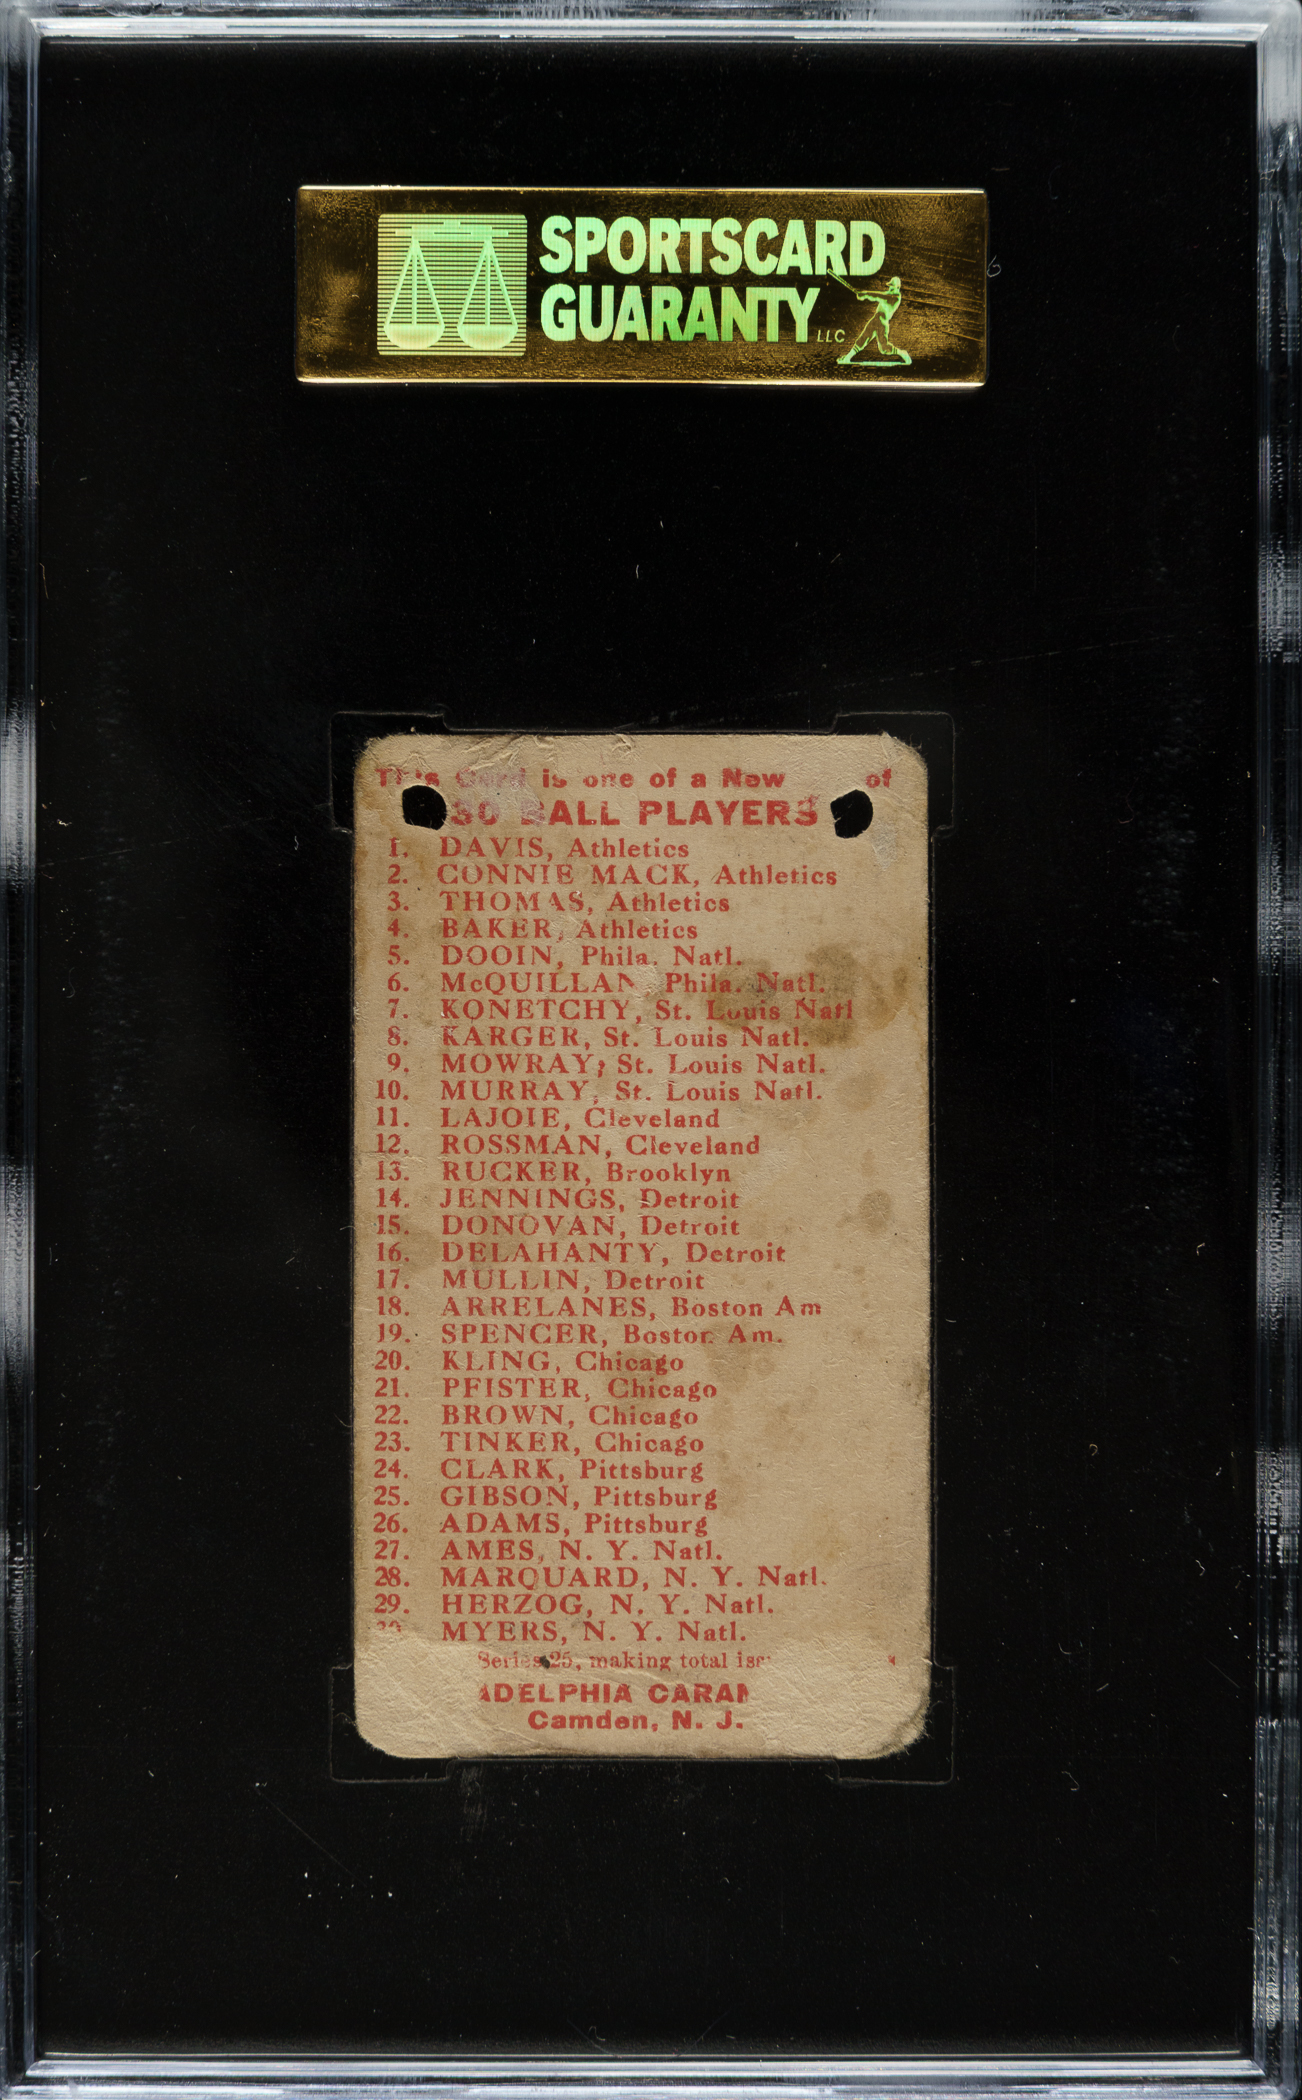 SPORTSCARD
GUARANTY LLC
This Card is one of a New of
30 BALL PLAYERS
1. DAVIS, Athletics
2. CONNIE MACK, Athletics
3. THOMAS, Athletics
4. BAKER, Athletics
5. DOOIN, Phila. Natl.
6. McQUILLAN Phila. Natl.
7. KONETCHY, St. Louis Natl
8. KARGER, St. Louis Natl.
9. MOWRAY, St. Louis Natl.
10. MURRAY, St. Louis Natl.
11. LAJOIE, Cleveland
12. ROSSMAN, Cleveland
13. RUCKER, Brooklyn
14. JENNINGS, Detroit
15. DONOVAN, Detroit
16. DELAHANTY, Detroit
17. MULLIN, Detroit
18. ARRELANES, Boston Am
19. SPENCER, Boston Am.
20. KLING, Chicago
21. PFISTER, Chicago
22. BROWN, Chicago
23. TINKER, Chicago
24. CLARK, Pittsburg
25. GIBSON, Pittsburg
26. ADAMS, Pittsburg
27. AMES, N. Y. Natl.
28. MARQUARD, N. Y. Natl.
29. HERZOG, N. Y. Natl.
30 MYERS, N. Y. Natl.
Series 25, making total
ADELPHIA CARAM
Camden, N. J.